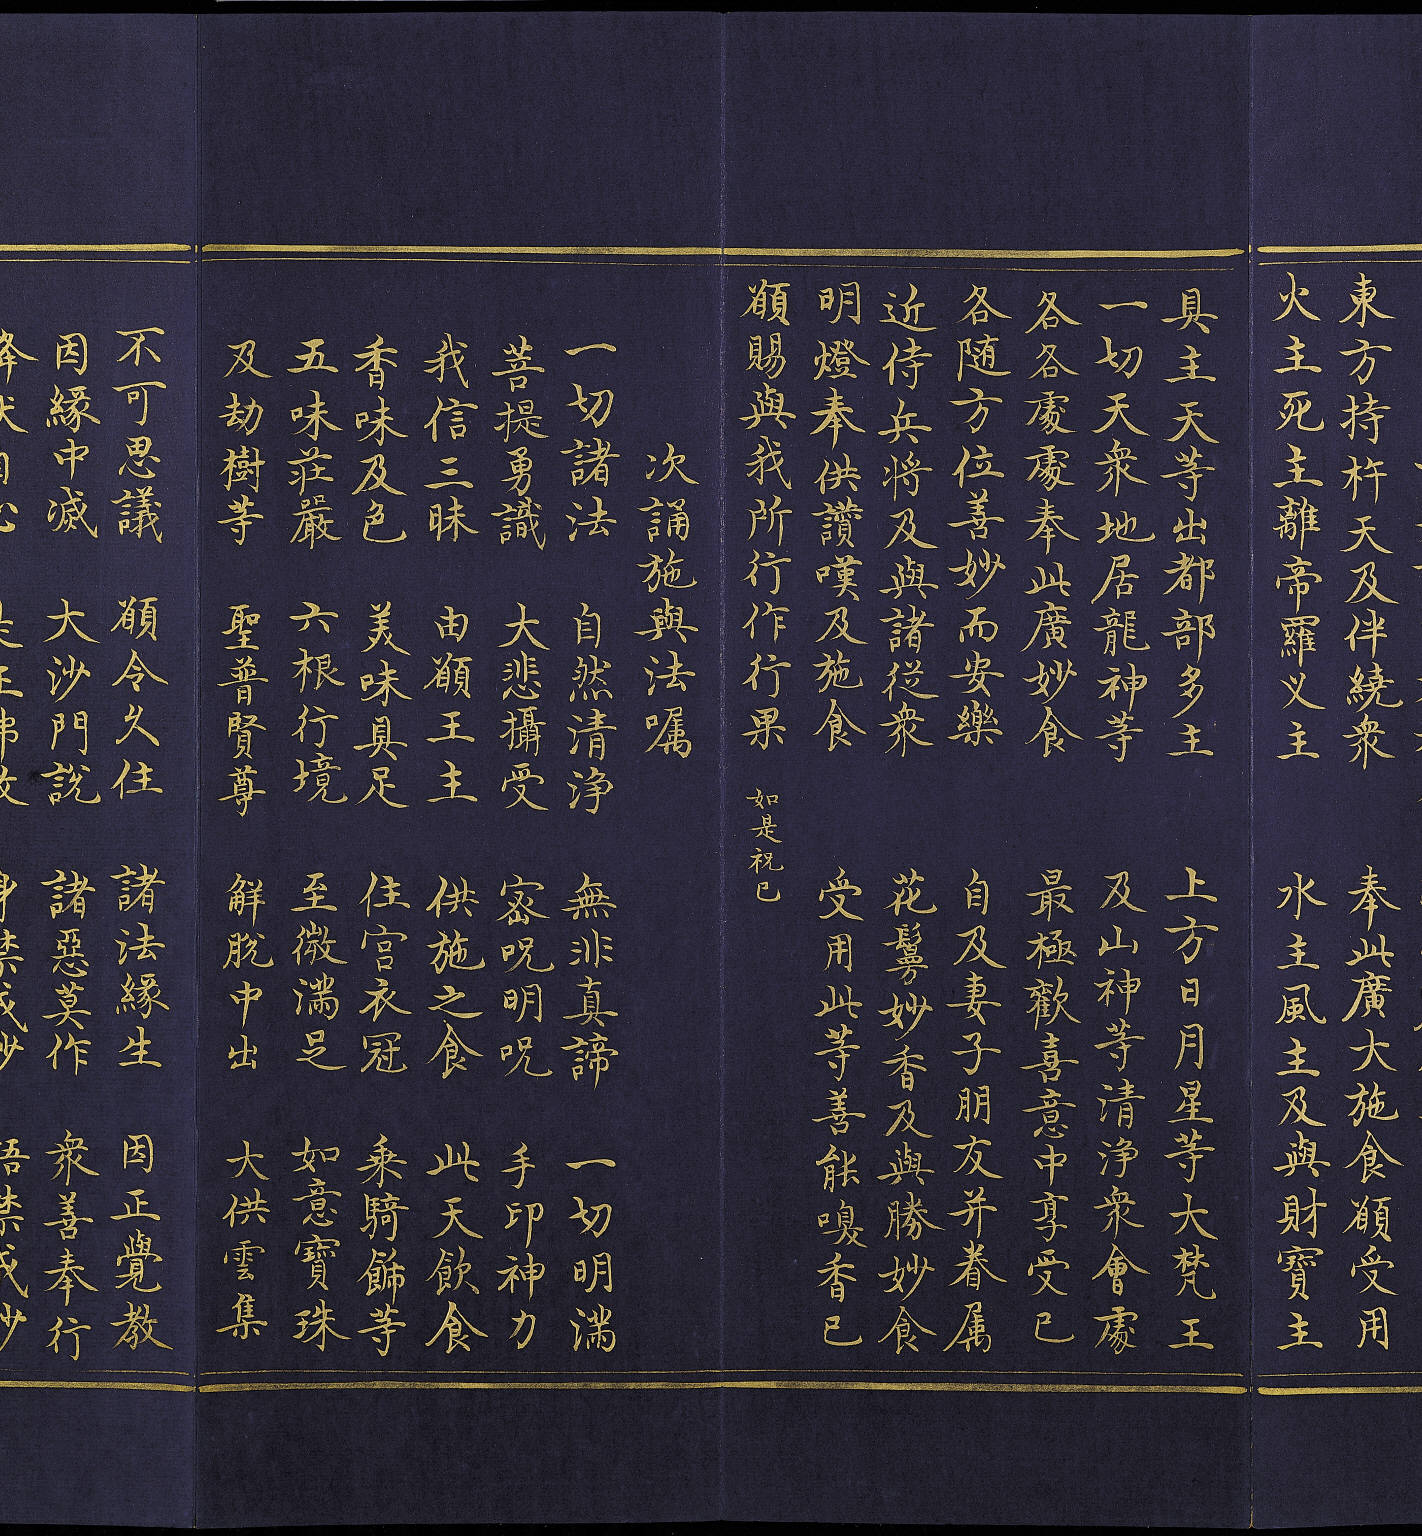 東方持杵天及伴繞衆 奉此廣大施食願受用
火主死主離帝羅义主 水主風主及與財寶主
具主天等出都部多主 上方日月星等大梵王
一切天衆地居龍神等 及山神等清淨衆會處
各各處處奉此廣妙食 最極歡喜意中享受已
各随方位善妙而安樂 自及妻子朋友并眷属
近侍兵将及與諸從衆 花鬘妙香及與勝妙食
明燈奉供讚嘆及施食 受用此等善能嗅香已
願賜與我所行作行果 如是祝已
次誦施與法嘱
一切諸法 自然清淨 無非真諦 一切明满
菩提勇識 大悲攝受 密呪明呪 手印神力
我信三昧 由願王主 供施之食 此天飲食
香味及色 美味具足 住宫衣冠 乘騎餙等
五味莊嚴 六根行境 至微满足 如意寶珠
及劫樹等 聖普賢尊 解脫中出 大供雲集
不可思議 願令久住 諸法緣生 因正覺教
因緣中滅 大沙門說 諸惡莫作 衆善奉行